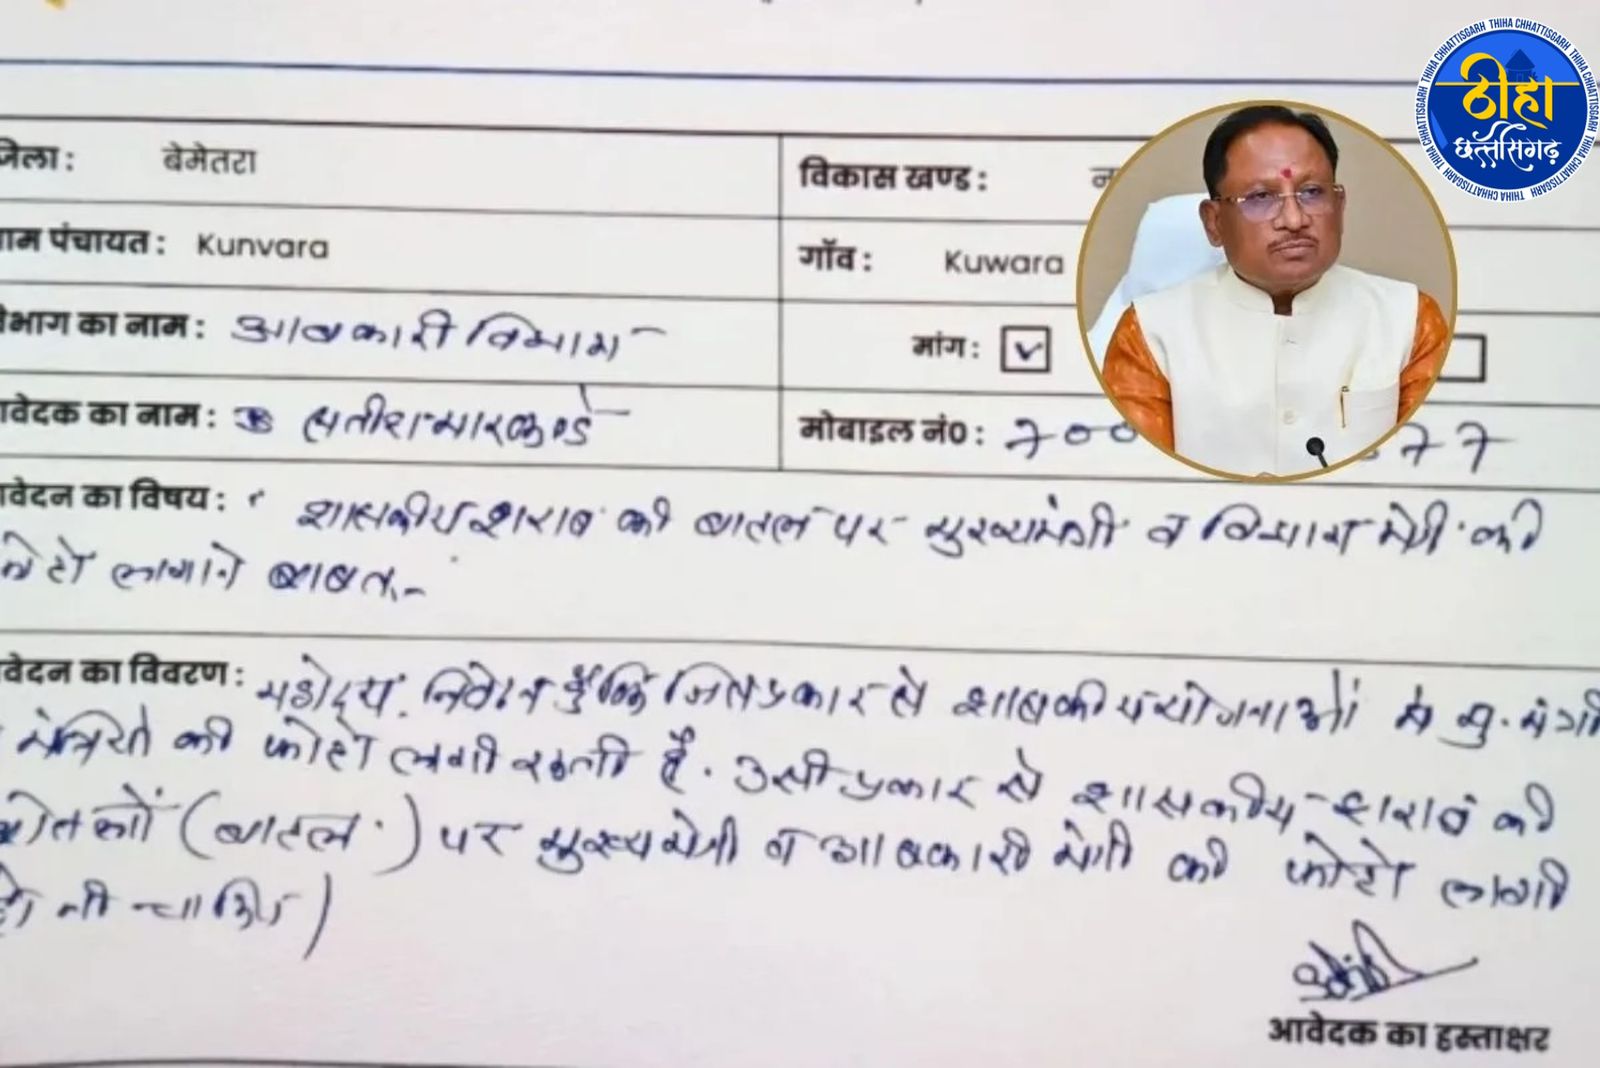 THIHA CHHATTISGARH THIHA CHHATTISGARH THIHA CHHATTISGARH THIHA CHHATTISGARH
ठीहा
छत्तीसगढ़
जिला : बेमेतरा विकास खण्ड :
ग्राम पंचायत : Kunvara गॉव : Kuwara
विभाग का नाम : आबकारी विभाग मांग :
आवेदक का नाम : सतीश मारकण्डे मोबाइल नं0 : 700 77
आवेदन का विषय : शासकीय शराब की बाटल पर मुख्यमंत्री व विभाग मंत्री की
फोटो लगाने बाबत.-
आवेदन का विवरण : महोदय, निवेदन है कि जिस प्रकार से शासकीय योजनाओं में मु. मंत्री
व मंत्रियों की फोटो लगी रहती है. उसी प्रकार से शासकीय शराब की
बोतलों (बाटल) पर मुख्यमंत्री व आबकारी मंत्री की फोटो लगी
होनी चाहिए।
आवेदक का हस्ताक्षर